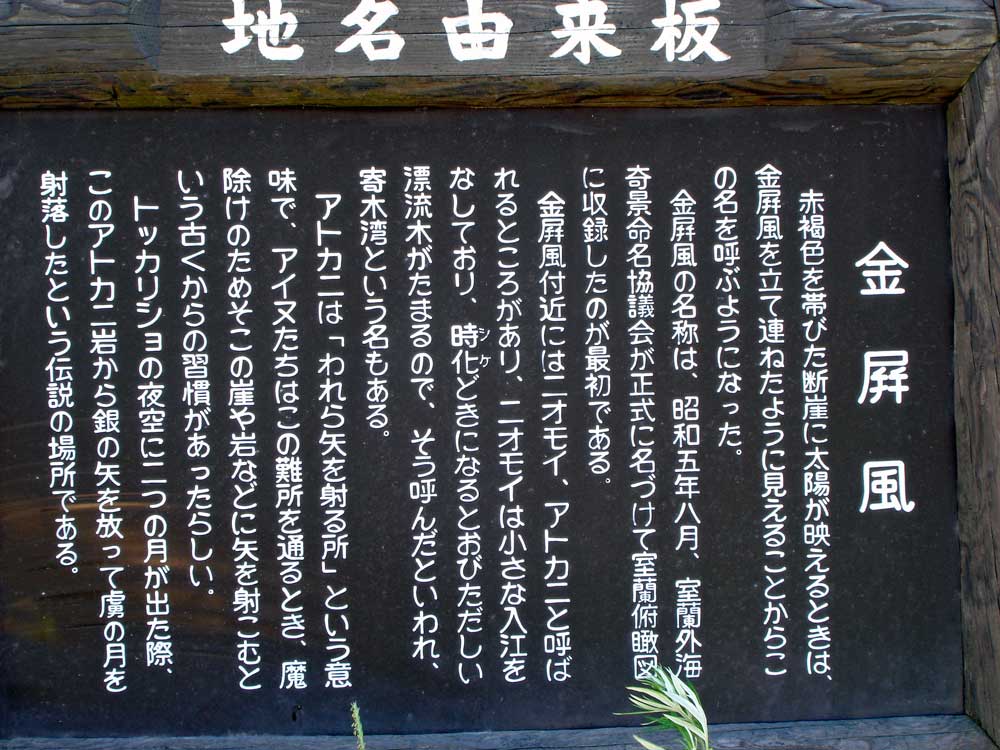 地名由来板
金屏風
赤褐色を帯びた断崖に太陽が映えるときは、
金屏風を立て連ねたように見えることからこ
の名を呼ぶようになった。
金屏風の名称は、昭和五年八月、室蘭外海
奇景命名協議会が正式に名づけて室蘭俯瞰図
に収録したのが最初である。
金屏風付近にはニオモイ、アトカニと呼ば
れるところがあり、ニオモイは小さな入江を
なしており、時化どきになるとおびただしい
シケ
漂流木がたまるので、そう呼んだといわれ、
寄木湾という名もある。
アトカニは「われら矢を射る所」という意
味で、アイヌたちはこの難所を通るとき、魔
除けのためそこの崖や岩などに矢を射こむと
いう古くからの習慣があったらしい。
トッカリショの夜空に二つの月が出た際、
このアトカニ岩から銀の矢を放って虜の月を
射落したという伝説の場所である。